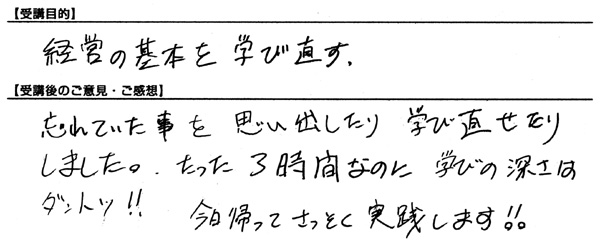 【受講目的】
経営の基本を学び直す.
【受講後のご意見・ご感想】
忘れていた事を思い出したり学び直せたり
しました。.たった3時間なのに学びの深さは
ダントツ!!
今日帰ってさっそく実践します!!